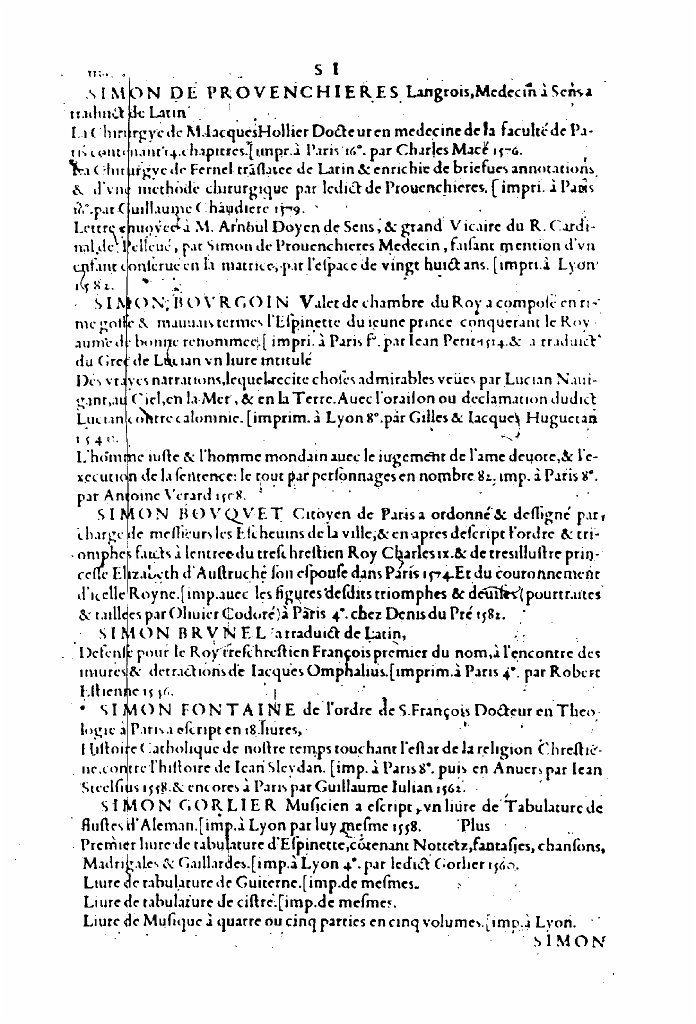 S I
SIMON DE PROVENCHIERES Langrois, Medecin à Sens a
traduict de Latin
La Chirurgye de M. Iacques Hollier Docteur en medecine de la faculté de Pa-
ris contenant 14. chapitres. [impr. à Paris 16°. par Charles Macé 1576.
La Chirurgye de Fernel trãslatee de Latin & enrichie de briefues annotations,
& d'vne methode chirurgique par ledict de Prouenchieres. [impri. à Paris
16°. par Guillaume Chaudiere 1579.
Lettre enuoyee à M. Arnoul Doyen de Sens, & grand Vicaire du R. Cardi-
nal de Pelleué, par Simon de Prouenchieres Medecin, faisant mention d'vn
enfant conserué en la matrice, par l'espace de vingt huict ans. [impri. à Lyon
1582.
SIMON BOVRGOIN Valet de chambre du Roy a composé en ri-
me & mauuais termes l'Espinette du ieune prince conquerant le Roy
aume de bonne renommee; [impri. à Paris f°. par Iean Petit 1514. & a traduict
du Grec de Lucian vn liure intitulé
Des vrayes narrations, lequel recite choses admirables veües par Lucian Naui-
gant, au Ciel, en la Mer, & en la Terre. Auec l'oraison ou declamation dudict
Lucian contre calomnie. [imprim. à Lyon 8°. par Gilles & Iacques Huguetan
1540.
L'homme iuste & l'homme mondain auec le iugement de l'ame deuote, & l'e-
xecution de la sentence: le tout par personnages en nombre 82. imp. à Paris 8°.
par Antoine Verard 1508.
SIMON BOVQVET Citoyen de Paris a ordonné & dessigné par
charge de messieurs les Escheuins de la ville, & en apres descript l'ordre & tri-
omphes faicts à lentree du treschrestien Roy Charles ix. & de tresillustre prin-
cesse Elizabeth d'Austruche son espouse dans Paris 1574. Et du couronnement
d'icelle Royne. [imp. auec les figures desdits triomphes & deuises (pourtraites
& taillees par Oliuier Codoré) à Paris 4°. chez Denis du Pré 1582.
SIMON BRVNEL a traduict de Latin,
Defense pour le Roy treschrestien François premier du nom, à l'encontre des
iniures & detractions de Iacques Omphalius. [imprim. à Paris 4°. par Robert
Estienne 1556.
SIMON FONTAINE de l'ordre de S. François Docteur en Theo
logie à Paris a escript en 18. liures,
Histoire Catholique de nostre temps touchant l'estat de la religion Chrestiē-
ne, contre l'histoire de Iean Sleydan. [imp. à Paris 8°. puis en Anuers par Iean
Steelsius 1558. & encores à Paris par Guillaume Iulian 1562.
SIMON GORLIER Musicien a escript, vn liure de Tabulature de
flustes d'Aleman. [imp. à Lyon par luy mesme 1558. Plus
Premier liure de tabulature d'Espinette, cõtenant Nottetz, fantasies, chansons,
Madrigales & Gaillardes. [imp. à Lyon 4°. par ledict Gorlier 1560.
Liure de tabulature de Guiterne. [imp. de mesmes.
Liure de tabulature de cistre. [imp. de mesmes.
Liure de Musique à quatre ou cinq parties en cinq volumes. [imp. à Lyon.
SIMON